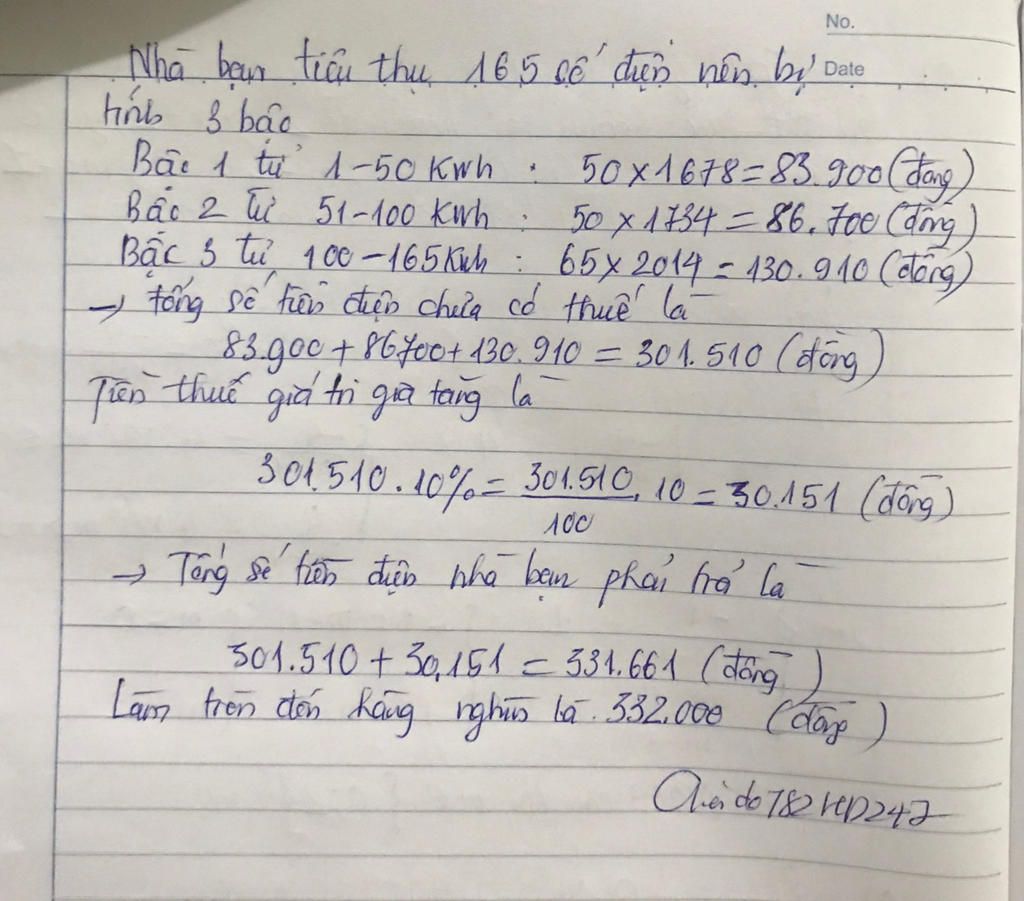 No.
Date
Nhà bạn tiêu thụ 165 số điện nên bị
tính 3 bậc
Bậc 1 từ 1-50 Kwh : 50 x 1678 = 83.900 (đồng)
Bậc 2 từ 51-100 Kwh : 50 x 1734 = 86.700 (đồng)
Bậc 3 từ 100-165 Kwh : 65 x 2014 = 130.910 (đồng)
→ tổng số tiền điện chưa có thuế là
83.900 + 86700 + 130.910 = 301.510 (đồng)
Tiền thuế giá trị gia tăng là
301.510 . 10% = 301.510 / 100 . 10 = 30.151 (đồng)
→ Tổng số tiền điện nhà bạn phải trả là
301.510 + 30.151 = 331.661 (đồng)
Làm tròn đến hàng nghìn là 332.000 (đồng)